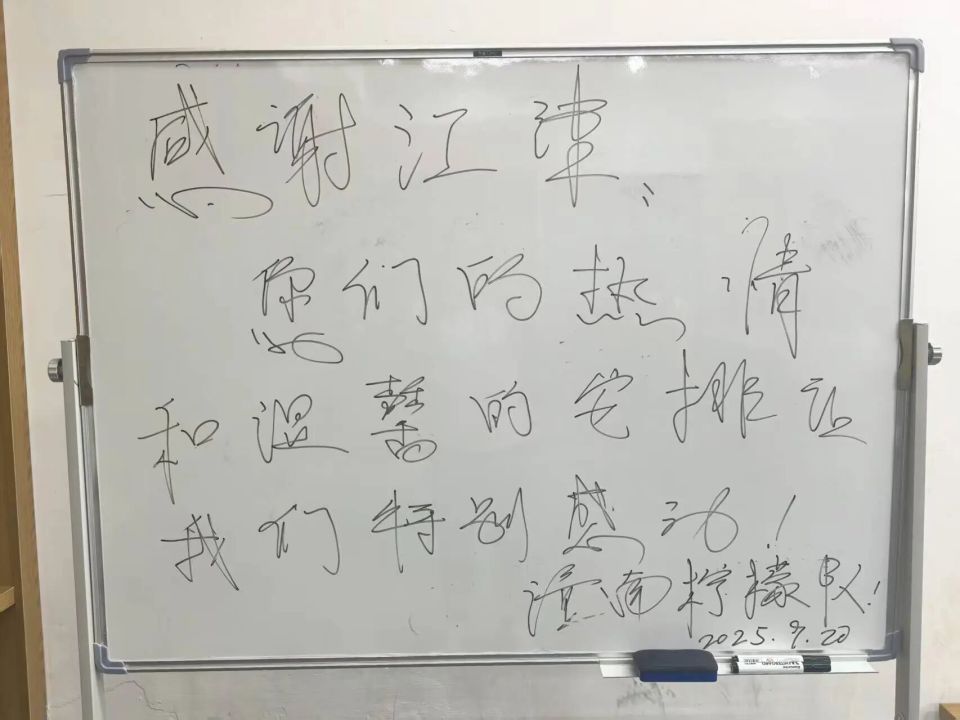 感谢江津:
您们的热情
和温馨的安排让
我们特别感动!
潼南柠檬队!
2025.9.20